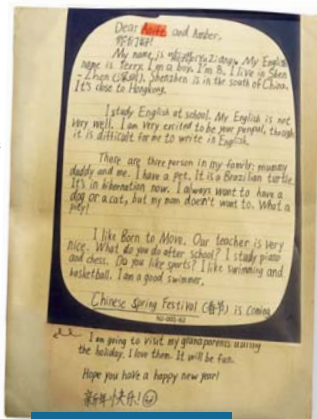 Dear and Amber,
你们好!
My name is Ziang. My English
name is Terry. I'm a boy. I'm 8. I live in Shen
-Zhen (深圳). Shenzhen is in the south of China.
It's close to Hongkong.
I study English at school. My English is not
very well. I am very excited to be your penpal, though
it is difficult for me to write in English.
There are three person in my family: mummy
daddy and me. I have a pet. It is a Brazilian turtle.
It's in hibernation now. I always want to have a
dog or a cat, but my mom doesn't want to. What a
pity!
I like Born to Move. Our teacher is very
nice. What do you do after school? I study piano
and chess. Do you like sports? I like swimming and
basketball. I am a good swimmer.
Chinese Spring Festival (春节) is coming
I am going to visit my grandparents during
the holiday. I love them. It will be fun.
Hope you have a happy new year!
新年快乐!